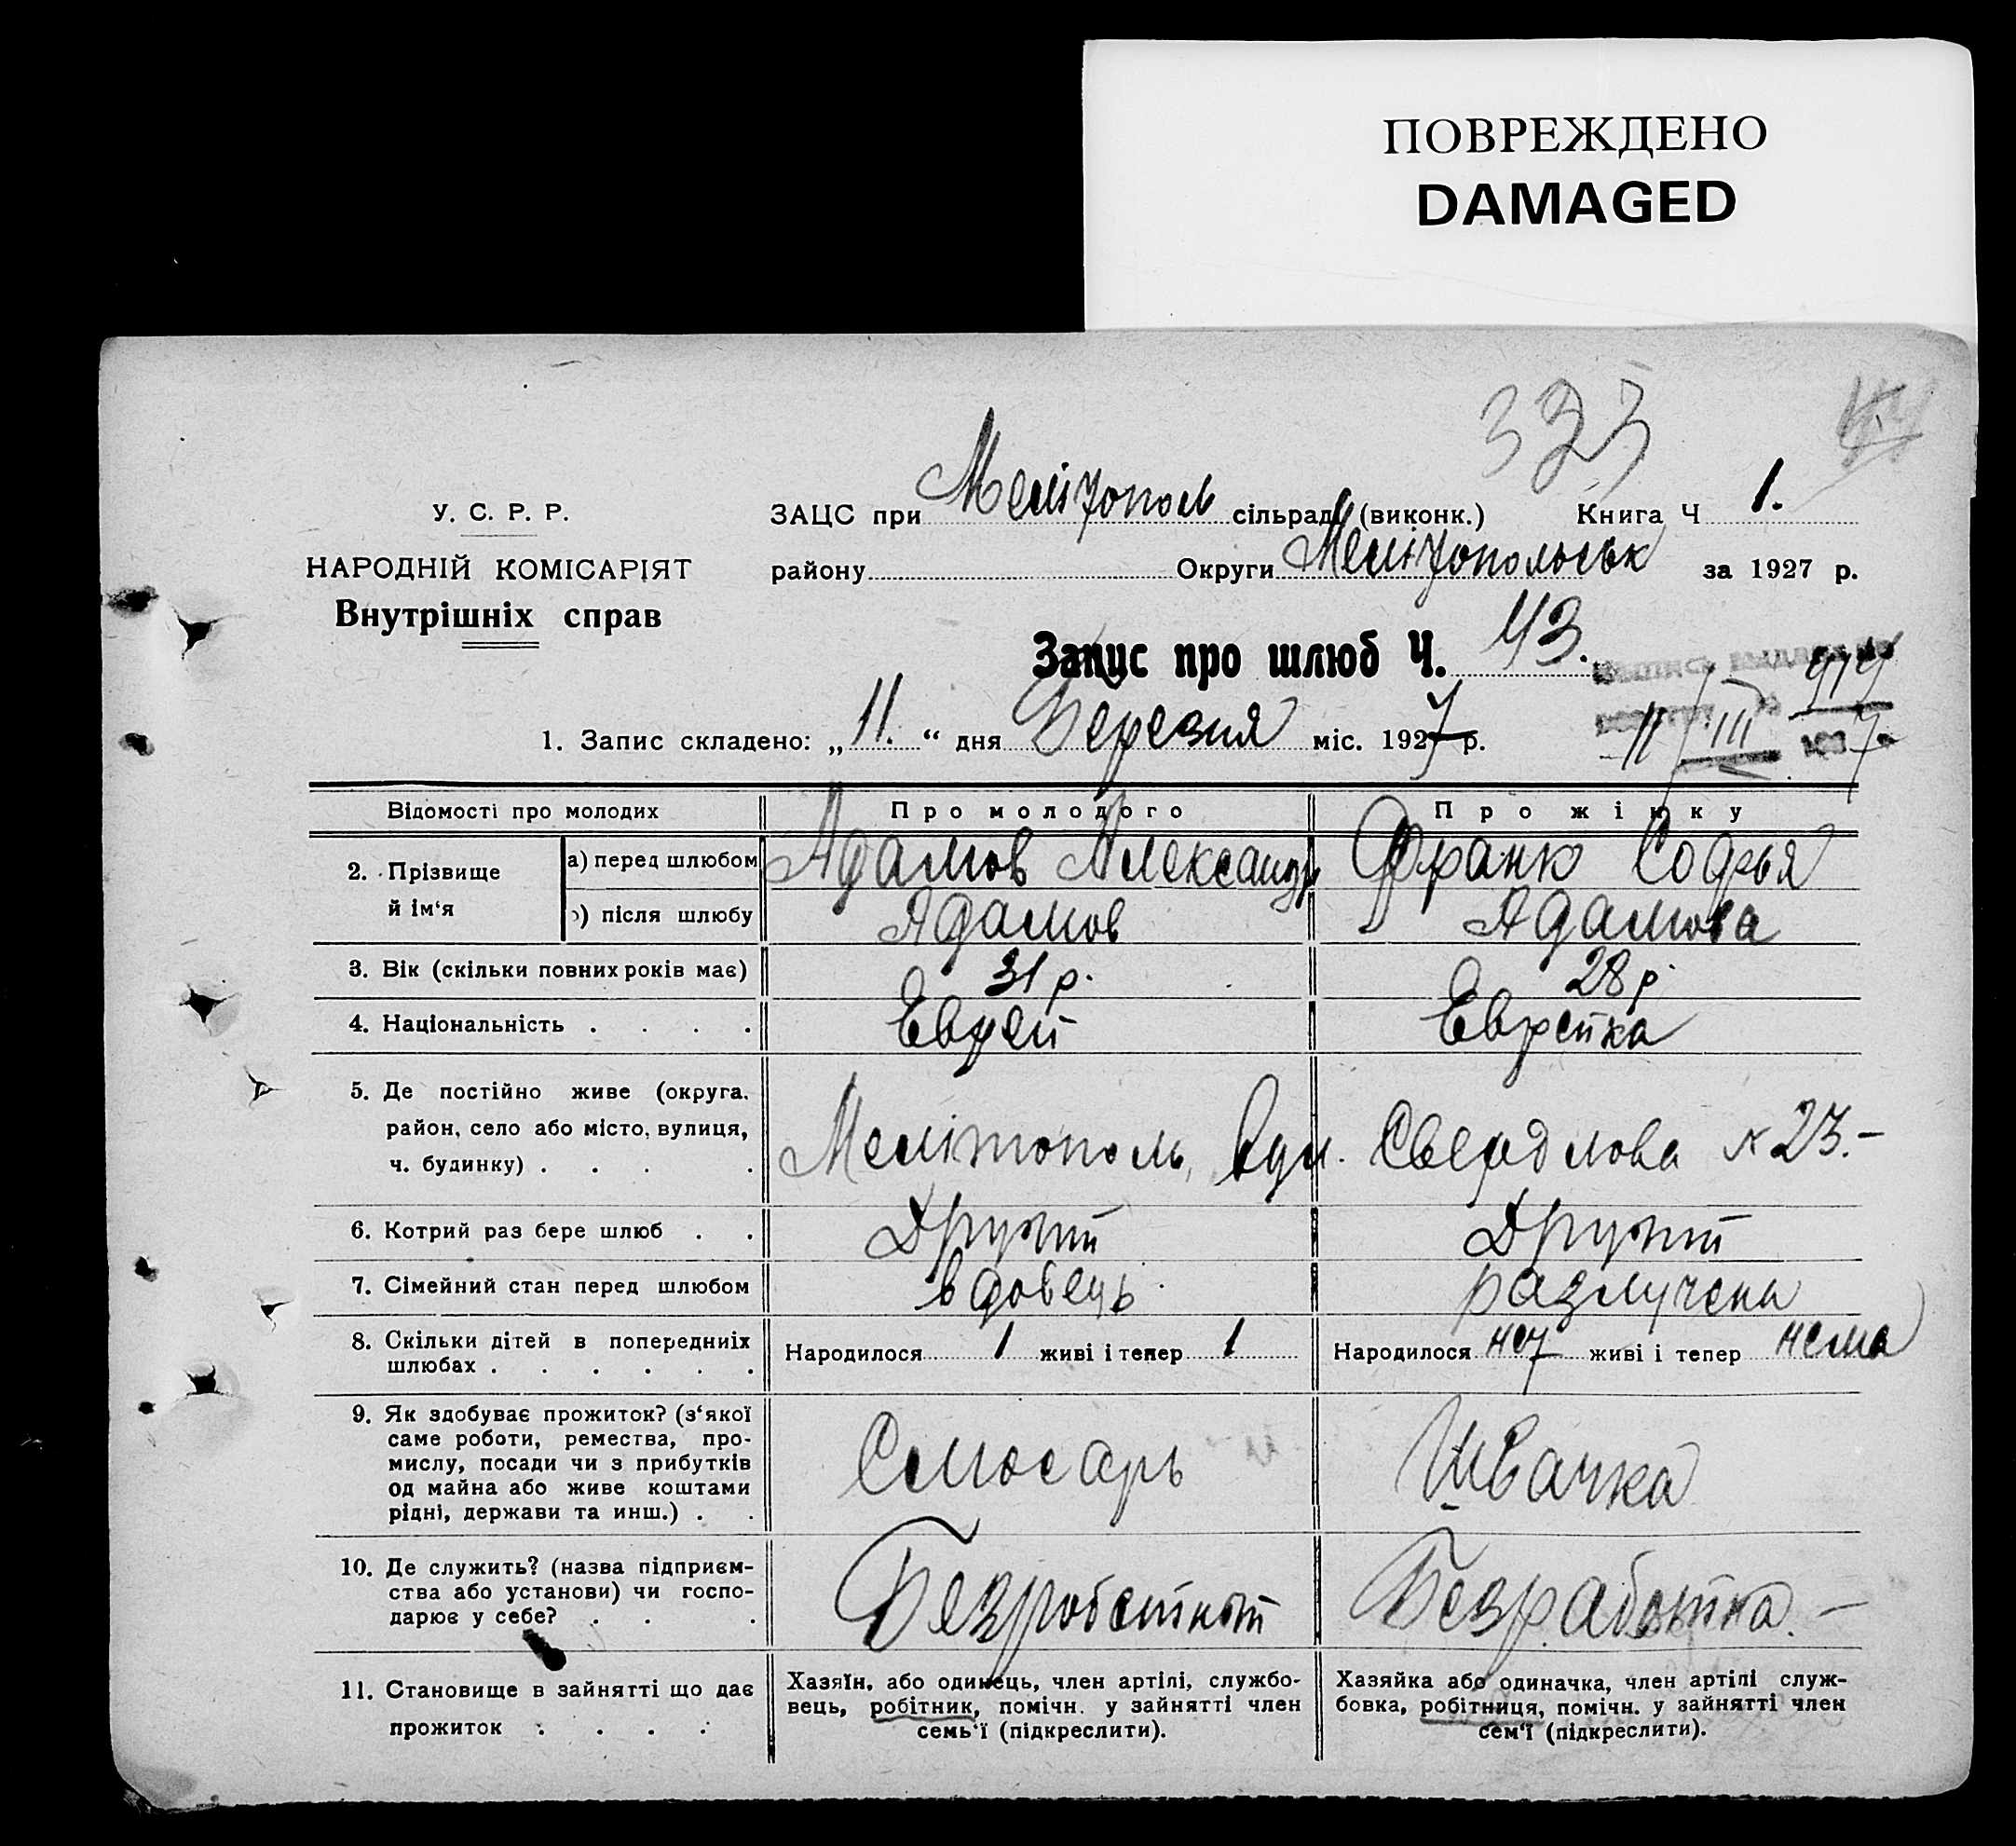 ПОВРЕЖДЕНО
DAMAGED
323
У. С. Р. Р.
НАРОДНІЙ КОМІСАРІЯТ
Внутрішніх справ
ЗАЦС при Мелітополь сільраді (виконк.) Книга Ч 1.
району Округи Мелітопольськ за 1927 р.
Запис про шлюб Ч. 43.
1. Запис складено: „11.“ дня Березня міс. 1927 р.
11/III 7.
Відомості про молодих Про молодого Про жінку
2. Прізвище й ім‘я
а) перед шлюбом Адамов Александр Франк Софья
) після шлюбу Адамов Адамова
3. Вік (скільки повних років має) 31 р. 28 р.
4. Національність . . . . Еврей Еврейка
5. Де постійно живе (округа,
район, село або місто, вулиця,
ч. будинку) . . . . Мелітополь, вул. Свердлова № 23.-
6. Котрий раз бере шлюб . . Другий Другий
7. Сімейний стан перед шлюбом вдовець разлучена
8. Скільки дітей в попередниіх
шлюбах . . . . . . Народилося 1 живі і тепер 1 Народилося нет живі і тепер нема
9. Як здобуває прожиток? (з‘якої
саме роботи, ремества, про-
мислу, посади чи з прибутків
од майна або живе коштами
рідні, держави та инш.) . .
Слюсарь Швачка
10. Де служить? (назва підприєм-
ства або установи) чи госпо-
дарює у себе? . . .
Безробетный Безработна. —
11. Становище в зайнятті що дає
прожиток . . . .
Хазяїн, або одинець, член артілі, службо-
вець, робітник, помічн. у зайнятті член
семь‘ї (підкреслити).
Хазяйка або одиначка, член артілі служ-
бовка, робітниця, помічн. у зайнятті член
сем‘ї (підкреслити).